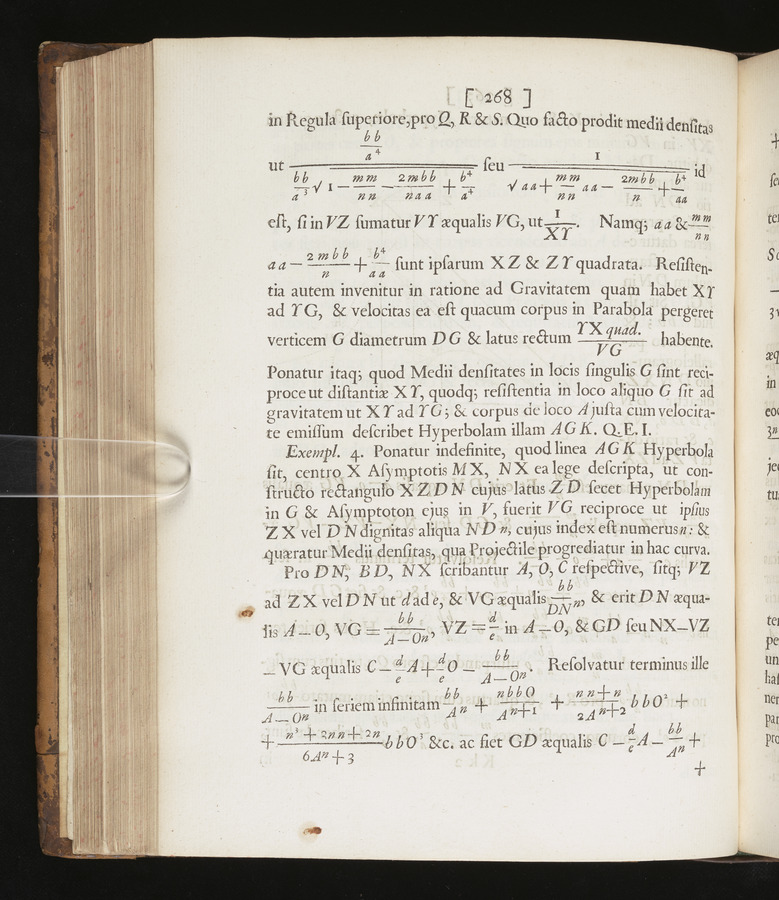 [ 268 ]
in Regula ſuperiore, pro Q, R & S. Quo facto prodit medii denſitas
ut (bb/a⁴) / (bb/a³ √ 1 − mm/nn − 2mbb/naa + b⁴/a⁴) ſeu 1 / (√ aa + mm/nn aa − 2mbb/n + b⁴/aa) id
eſt, ſi in VZ ſumatur VY æqualis VG, ut 1/XY. Namq; aa & mm/nn
aa − 2mbb/n + b⁴/aa ſunt ipſarum XZ & ZY quadrata. Reſiſten-
tia autem invenitur in ratione ad Gravitatem quam habet XY
ad YG, & velocitas ea eſt quacum corpus in Parabola pergeret
verticem G diametrum DG & latus rectum YX quad./VG habente.
Ponatur itaq; quod Medii denſitates in locis ſingulis G ſint reci-
proce ut diſtantiæ XY, quodq; reſiſtentia in loco aliquo G ſit ad
gravitatem ut XY ad YG; & corpus de loco A juſta cum velocita-
te emiſſum deſcribet Hyperbolam illam AGK. Q. E. I.
Exempl. 4. Ponatur indefinite, quod linea AGK Hyperbola
ſit, centro X Aſymptotis MX, NX ea lege deſcripta, ut con-
ſtructo rectangulo XZDN cujus latus ZD ſecet Hyperbolam
in G & Aſymptoton ejus in V, fuerit VG reciproce ut ipſius
ZX vel DN dignitas aliqua NDⁿ, cujus index eſt numerus n: &
quæratur Medii denſitas, qua Projectile progrediatur in hac curva.
Pro DN, BD, NX ſcribantur A, O, C reſpective, ſitq; VZ
ad ZX vel DN ut d ad e, & VG æqualis bb/DNⁿ, & erit DN æqua-
lis A − O, VG = bb/A − Oⁿ, VZ = d/e in A − O, & GD ſeu NX − VZ
− VG æqualis C − d/e A + d/e O − bb/A − Oⁿ. Reſolvatur terminus ille
bb/A − Oⁿ in ſeriem infinitam bb/Aⁿ + nbbO/Aⁿ⁺¹ + nn + n/2Aⁿ⁺² bbO² +
+ n³ + 3nn + 2n/6Aⁿ⁺³ bbO³ &c. ac fiet GD æqualis C − d/e A − bb/Aⁿ +
+